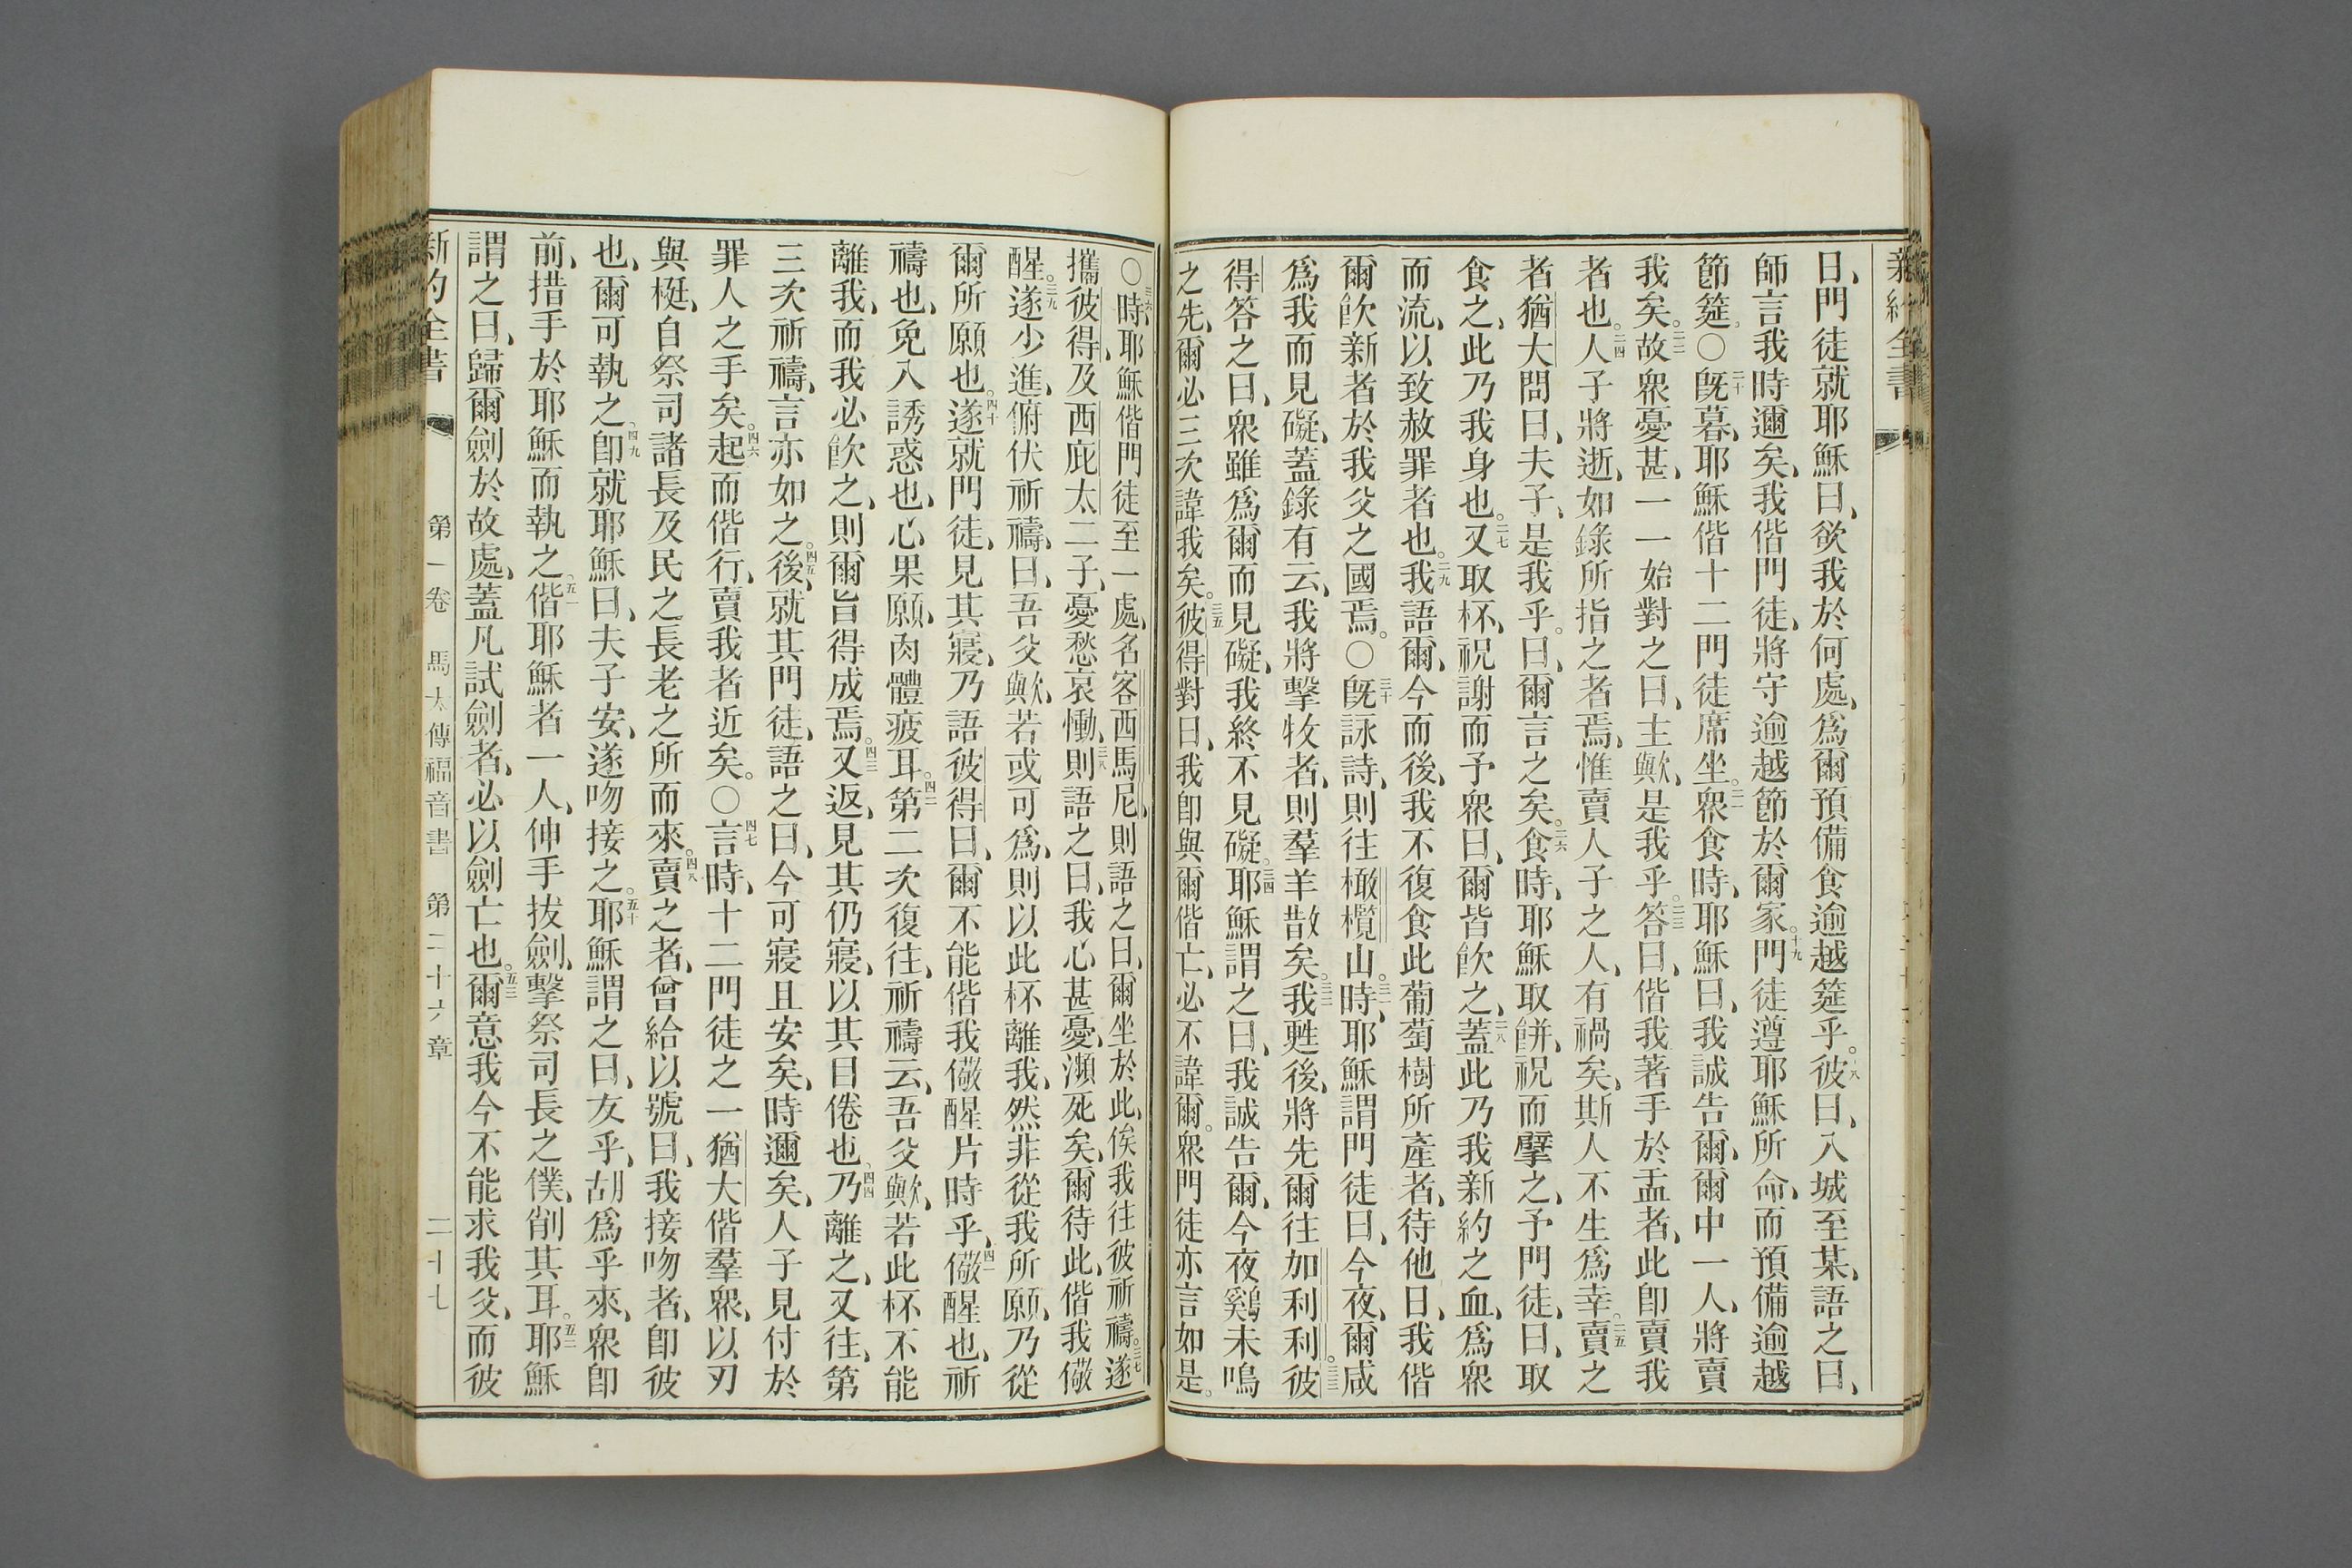 新約全書
日、門徒就耶穌曰、欲我於何處、爲爾預備食逾越筵乎。十八彼曰、入城至某、語之曰、
師言我時邇矣、我偕門徒、將守逾越節於爾家。十九門徒遵耶穌所命、而預備逾越
節筵。〇二十旣暮、耶穌偕十二門徒席坐。二一衆食時、耶穌曰、我誠告爾、爾中一人、將賣
我矣。二二故衆憂甚、一一始對之曰、主歟、是我乎。二三答曰、偕我著手於盂者、此卽賣我
者也。二四人子將逝、如錄所指之者焉、惟賣人子之人、有禍矣、斯人不生爲幸。二五賣之
者猶大問曰、夫子、是我乎。曰、爾言之矣。二六食時、耶穌取餠、祝而擘之、予門徒、曰、取
食之、此乃我身也。二七又取杯、祝謝而予衆、曰、爾皆飮之、二八蓋此乃我新約之血、爲衆
而流、以致赦罪者也。二九我語爾、今而後、我不復食此葡萄樹所產者、待他日、我偕
爾飮新者於我父之國焉。〇三十旣詠詩、則往橄欖山。三一時、耶穌謂門徒曰、今夜、爾咸
爲我而見礙、蓋錄有云、我將擊牧者、則羣羊散矣。三二我甦後、將先爾往加利利。三三彼
得答之曰、衆雖爲爾而見礙、我終不見礙。三四耶穌謂之曰、我誠告爾、今夜鷄未鳴
之先、爾必三次諱我矣。三五彼得對曰、我卽與爾偕亡、必不諱爾。衆門徒亦言如是。
〇三六時、耶穌偕門徒至一處、名客西馬尼、則語之曰、爾坐於此、俟我往彼祈禱。三七遂
攜彼得、及西庇太二子、憂愁哀慟、三八則語之曰、我心甚憂、瀕死矣、爾待此、偕我儆
醒。三九遂少進、俯伏祈禱、曰、吾父歟、若或可爲、則以此杯離我、然非從我所願、乃從
爾所願也。四十遂就門徒、見其寢、乃語彼得曰、爾不能偕我儆醒片時乎、四一儆醒也、祈
禱也、免入誘惑也、心果願、肉體疲耳。四二第二次復往、祈禱云、吾父歟、若此杯不能
離我、而我必飮之、則爾旨得成焉。四三又返、見其仍寢、以其目倦也、四四乃離之、又往、第
三次祈禱、言亦如之。四五後、就其門徒、語之曰、今可寢且安矣、時邇矣、人子見付於
罪人之手矣。四六起而偕行、賣我者近矣。〇四七言時、十二門徒之一猶大偕羣衆、以刃
與梃、自祭司諸長及民之長老之所而來。四八賣之者、曾給以號曰、我接吻者、卽彼
也、爾可執之、四九卽就耶穌曰、夫子安、遂吻接之。五十耶穌謂之曰、友乎、胡爲乎來、衆卽
前、措手於耶穌而執之、五一偕耶穌者一人、伸手拔劍、擊祭司長之僕、削其耳。五二耶穌
謂之曰、歸爾劍於故處、蓋凡試劍者、必以劍亡也。五三爾意我今不能求我父、而彼
新約全書 第一卷 馬太傳福音書 第二十六章 二十七